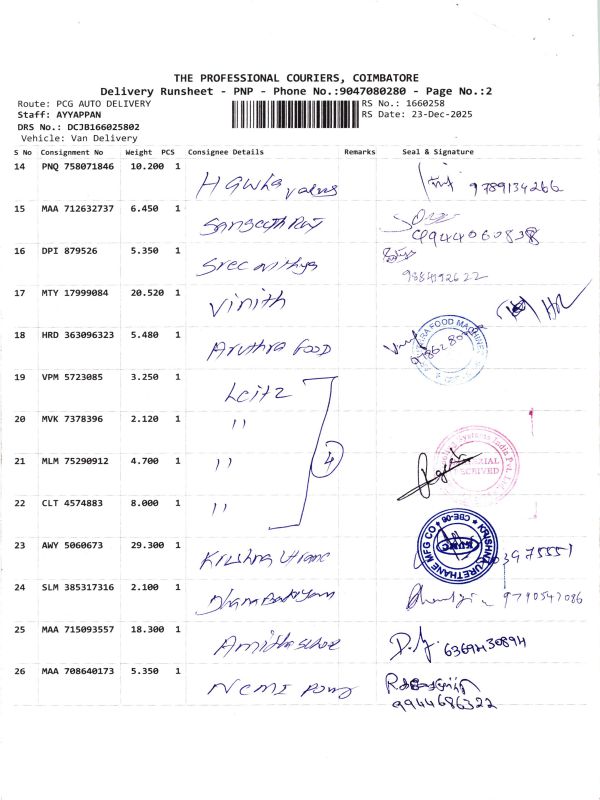 THE PROFESSIONAL COURIERS, COIMBATORE
Delivery Runsheet - PNP - Phone No.:9047080280 - Page No.:2
Route: PCG AUTO DELIVERY RS No.: 1660258
Staff: AYYAPPAN RS Date: 23-Dec-2025
DRS No.: DCJB166025802
Vehicle: Van Delivery
S No Consignment No Weight PCS Consignee Details Remarks Seal & Signature
14 PNQ 758071846 10.200 1 9789134266
15 MAA 712632737 6.450 1 Sangeeth Raj 9944060838
16 DPI 879526 5.350 1 9884192622
17 MTY 17999084 20.520 1 Vinith
18 HRD 363096323 5.480 1 Aruthra FOOD FOOD MACHINES
19 VPM 5723085 3.250 1 Leitz
20 MVK 7378396 2.120 1 "
21 MLM 75290912 4.700 1 " 4 Systems India Pvt.
22 CLT 4574883 8.000 1 "
23 AWY 5060673 29.300 1 Krishna KRISHNA URETHANE MFG CO CBE-06
24 SLM 385317316 2.100 1 9790547086
25 MAA 715093557 18.300 1 6369430894
26 MAA 708640173 5.350 1 9944686322